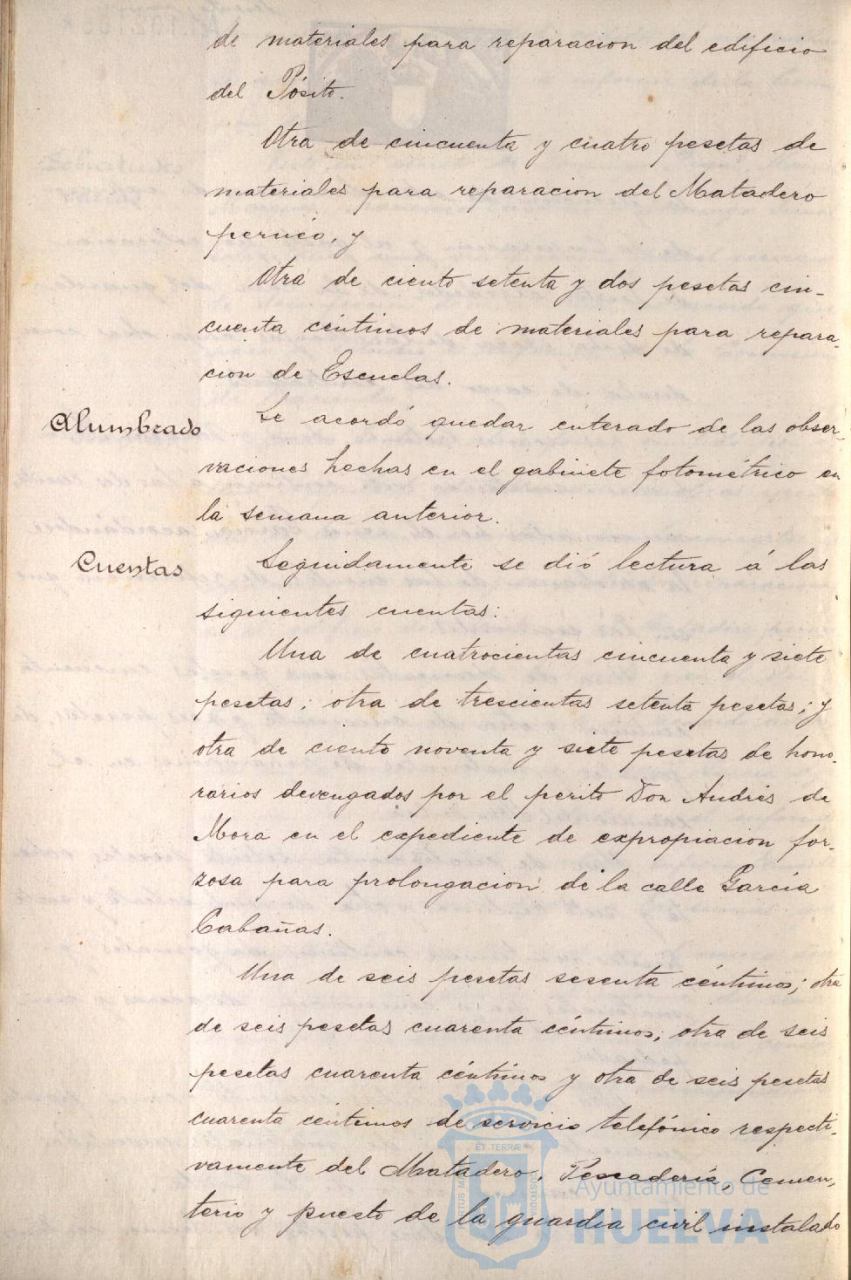 de materiales para reparacion del edificio
del Pósito.
Otra de cincuenta y cuatro pesetas de
materiales para reparacion del Matadero
perneo, y
Otra de ciento setenta y dos pesetas cin-
cuenta céntimos de materiales para repara-
cion de Escuelas.
Alumbrado
Se acordó quedar enterado de las obser-
vaciones hechas en el gabinete fotométrico en
la semana anterior.
Cuentas
Seguidamente se dió lectura á las
siguientes cuentas:
Una de cuatrocientas cincuenta y siete
pesetas; otra de trescientas setenta pesetas; y
otra de ciento noventa y siete pesetas de hono-
rarios devengados por el perito Don Andrés de
Mora en el expediente de expropiacion for-
zosa para prolongacion de la calle García
Cabañas.
Una de seis pesetas sesenta céntimos; otra
de seis pesetas cuarenta céntimos; otra de seis
pesetas cuarenta céntimos y otra de seis pesetas
cuarenta céntimos de servicio telefónico respecti-
vamente del Matadero, Pescadería, Cemen-
terio y puesto de la guardia civil instalado
ET TERRÆ
Ayuntamiento de
HUELVA